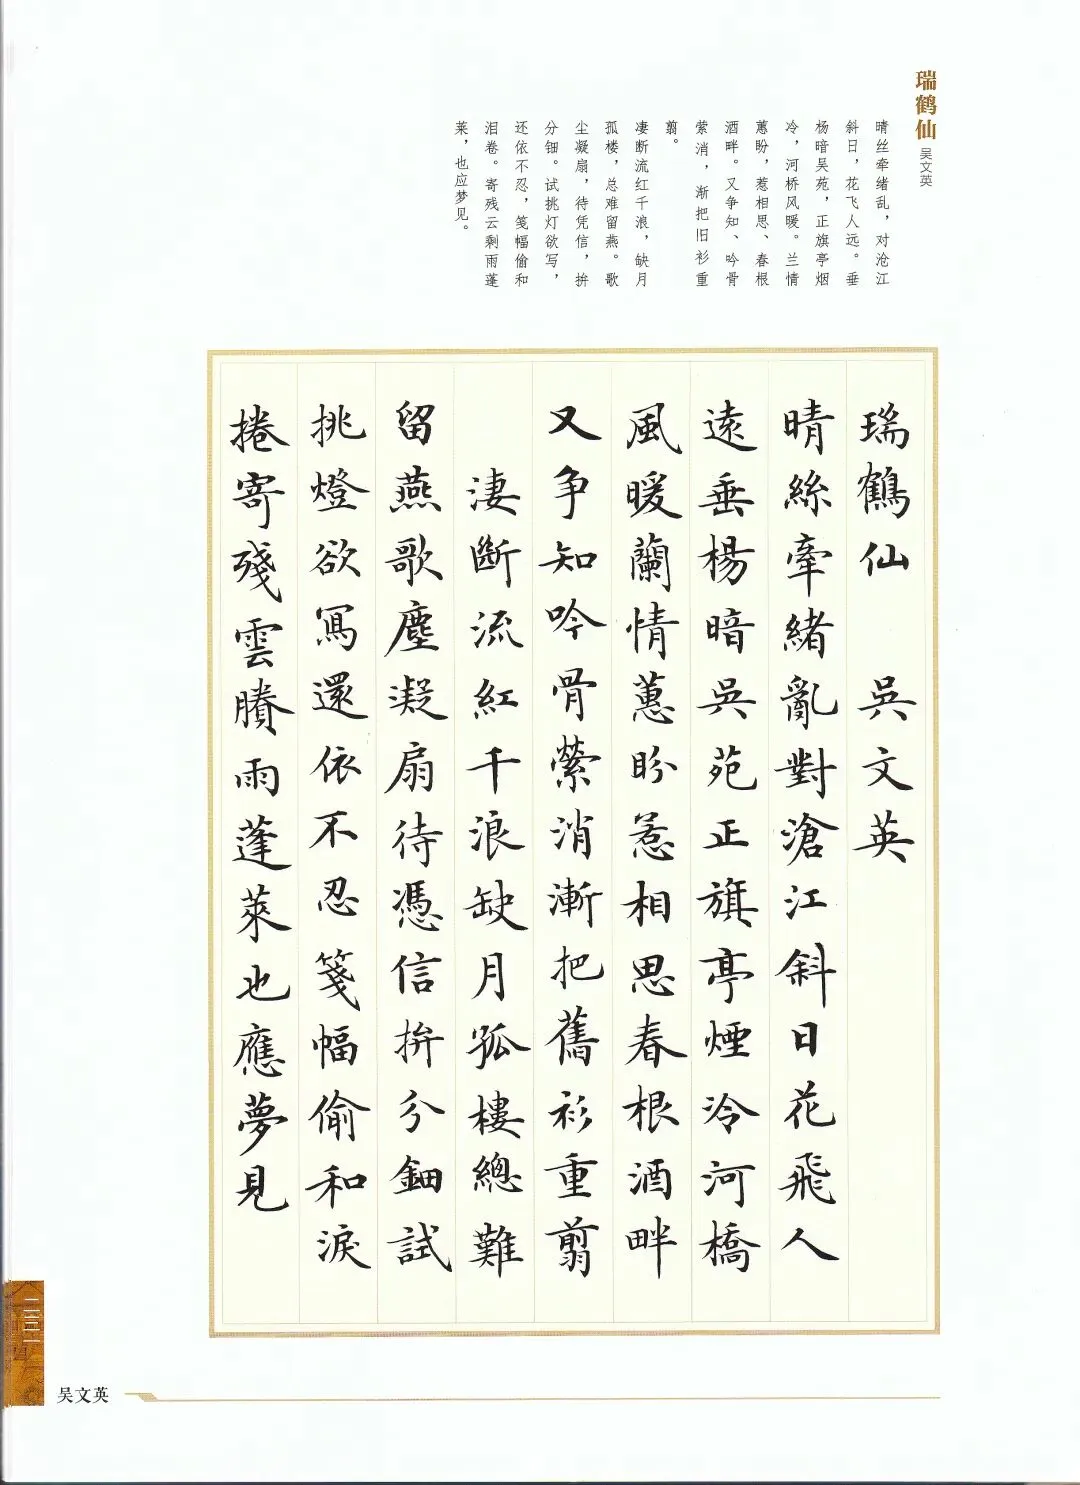 瑞鹤仙 吴文英
晴丝牵绪乱，对沧江
斜日，花飞人远。垂
杨暗吴苑，正旗亭烟
冷，河桥风暖。兰情
蕙盼，惹相思、春根
酒畔。又争知、吟骨
萦消，渐把旧衫重
翦。
凄断流红千浪，缺月
孤楼，总难留燕。歌
尘凝扇，待凭信，拚
分钿。试挑灯欲写，
还依不忍，笺幅偷和
泪卷。寄残云剩雨蓬
莱，也应梦见。
瑞鶴仙 吳文英
晴絲牽緒亂對滄江斜日花飛人
遠垂楊暗吳苑正旗亭煙冷河橋
風暖蘭情蕙盼惹相思春根酒畔
又争知吟骨縈消漸把舊衫重翦
淒斷流紅千浪缺月孤樓總難
留燕歌塵凝扇待憑信拚分鈿試
挑燈欲寫還依不忍箋幅偷和淚
捲寄殘雲賸雨蓬萊也應夢見
二三一
吴文英